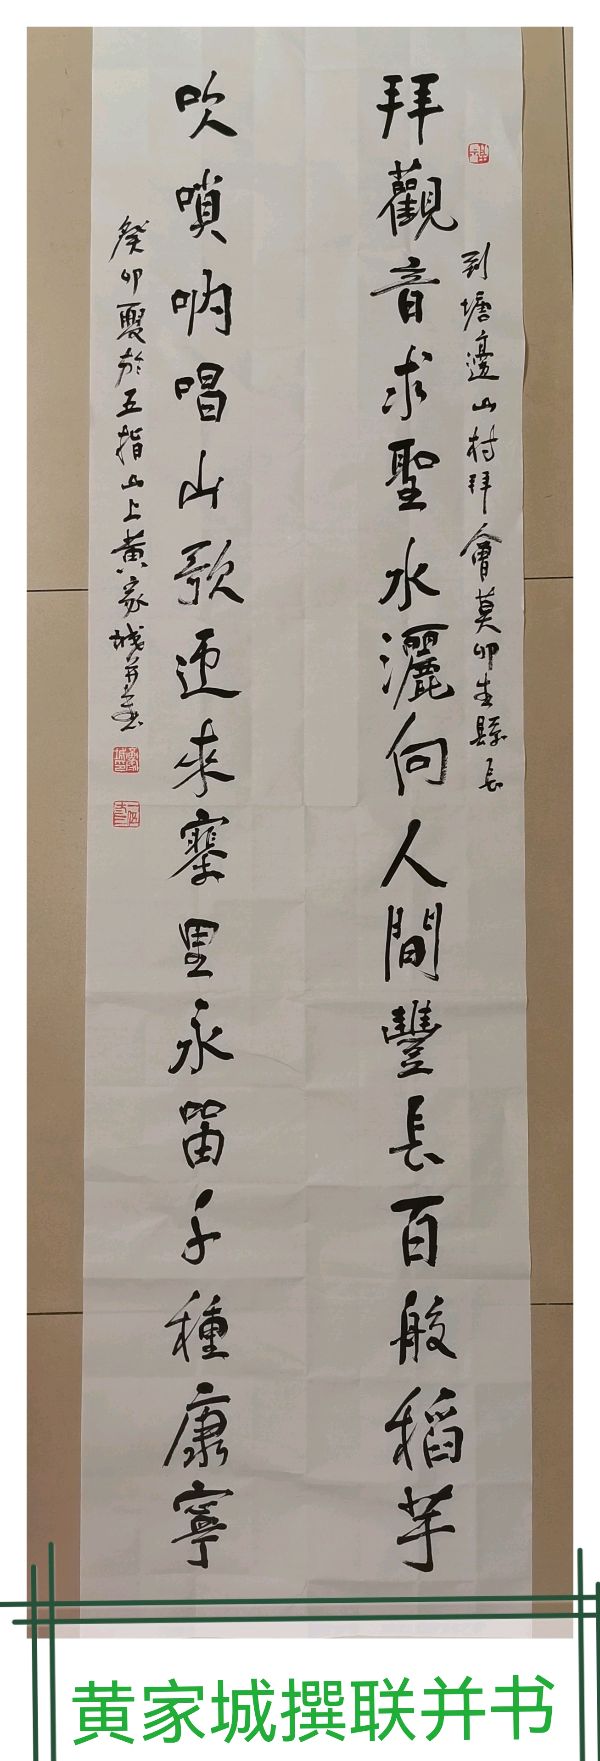 到塘邊山村拜會莫卯生縣長
拜觀音求聖水灑向人間豐長百般稻芋
吹嗩吶唱山歌迎來寨里永留千種康寧
癸卯夏於五指山上黄家城并書
黄家城撰联并书